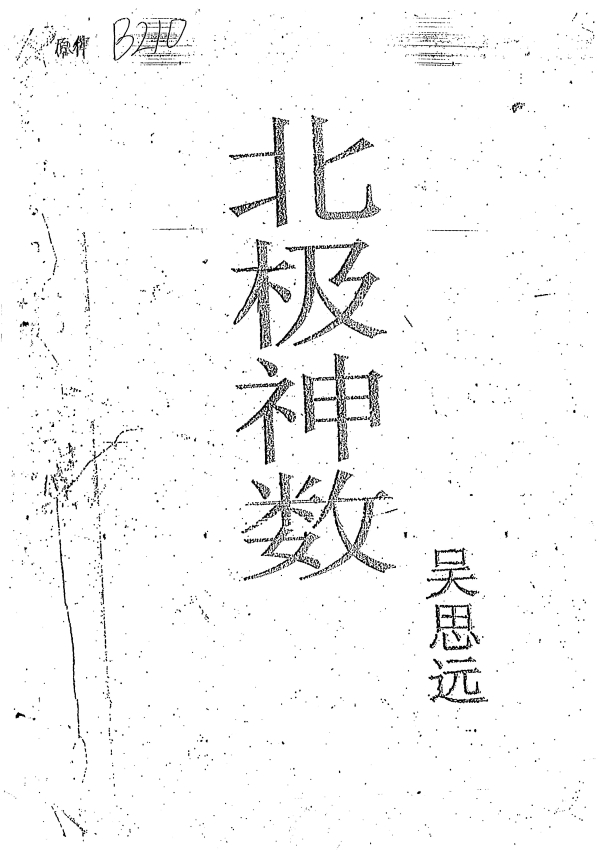 原件 B270
北极神数
吴思远